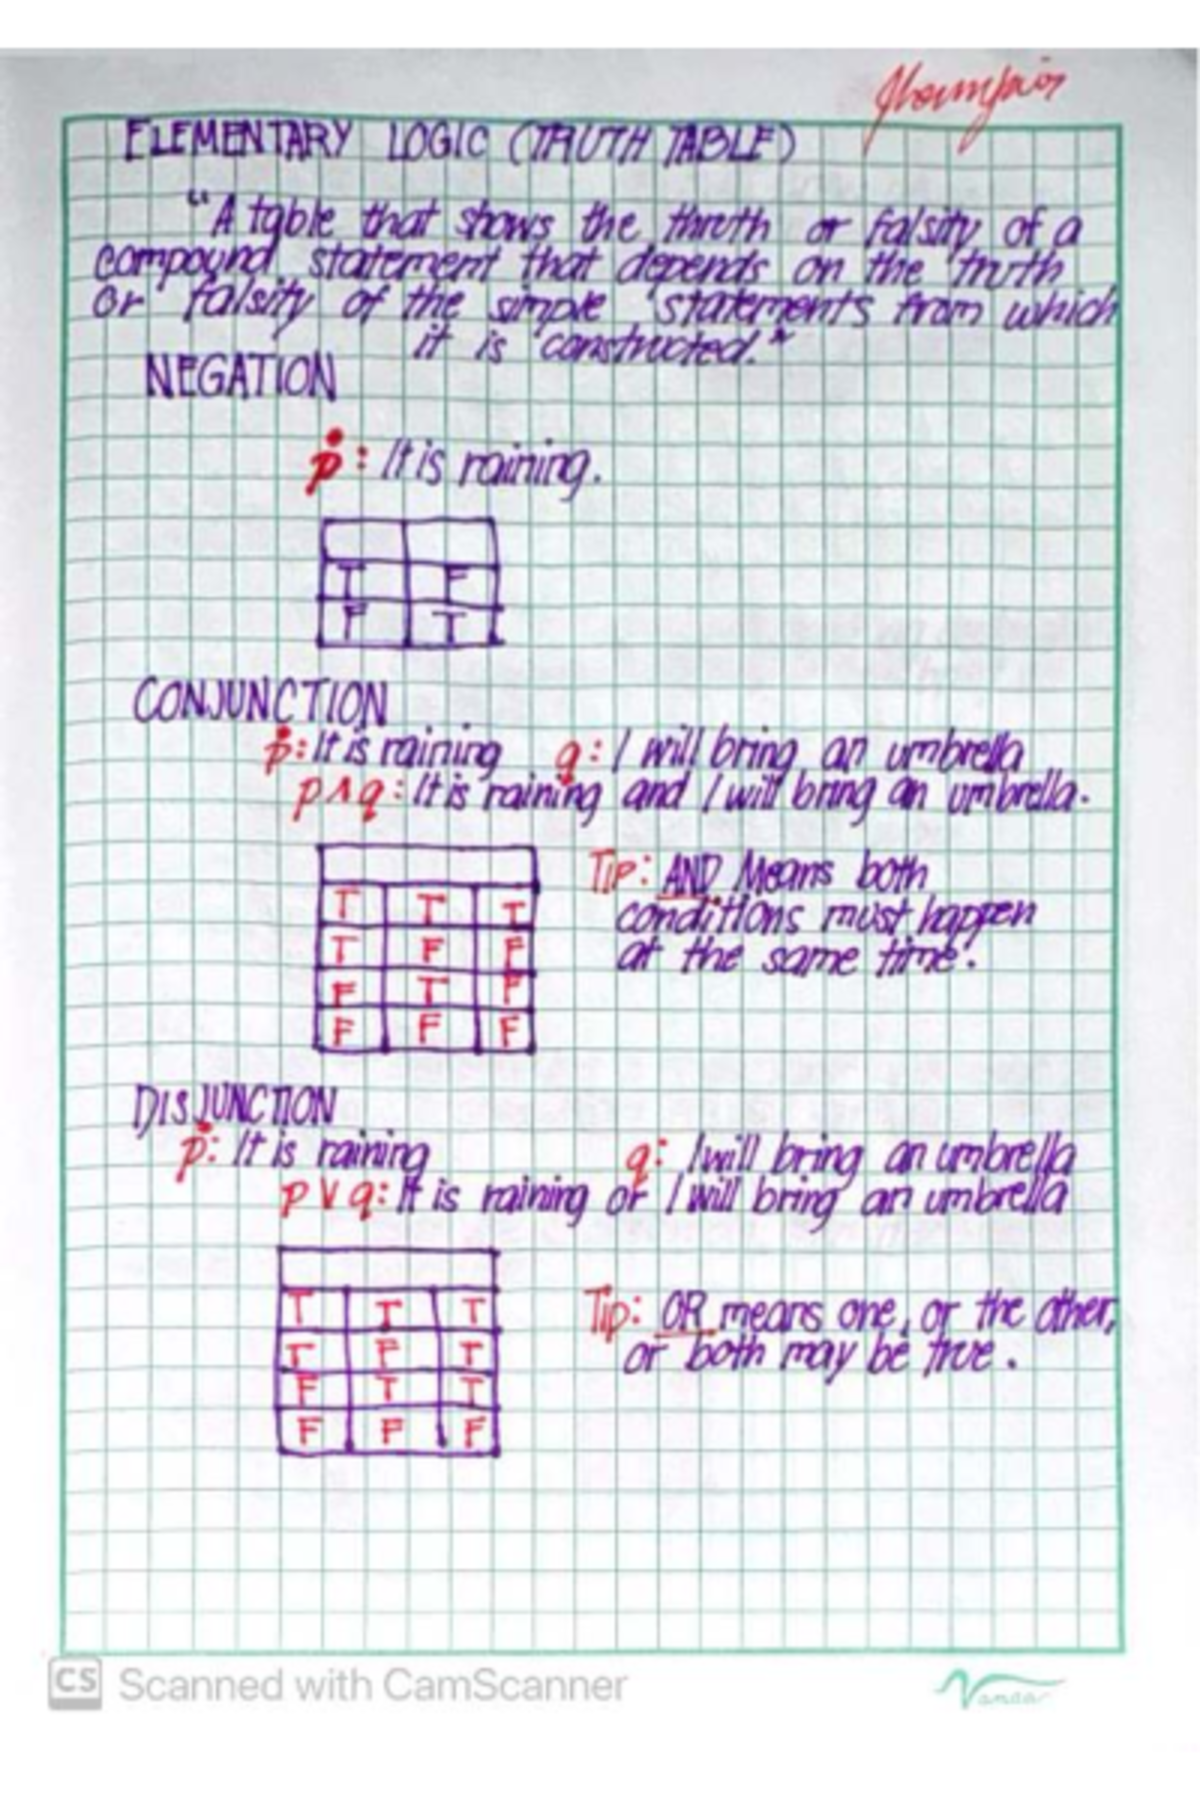 ELEMENTARY LOGIC (TRUTH TABLE)
"A table that shows the throth or falsity of a
compound statement that depends on the truth
or falsity of the simple statements from which
it is constructed."
NEGATION
p: It is raining.
T F
F T
CONJUNCTION
p: It is raining q: I will bring an umbrella
p ∧ q: It is raining and I will bring an umbrella.
Tip: AND Means both
conditions must happen
at the same time.
T T T
T F F
F T F
F F F
DISJUNCTION
p: It is raining q: I will bring an umbrella
p ∨ q: It is raining or I will bring an umbrella
Tip: OR means one, or the other,
or both may be true.
T T T
T F T
F T T
F F F
CS Scanned with CamScanner